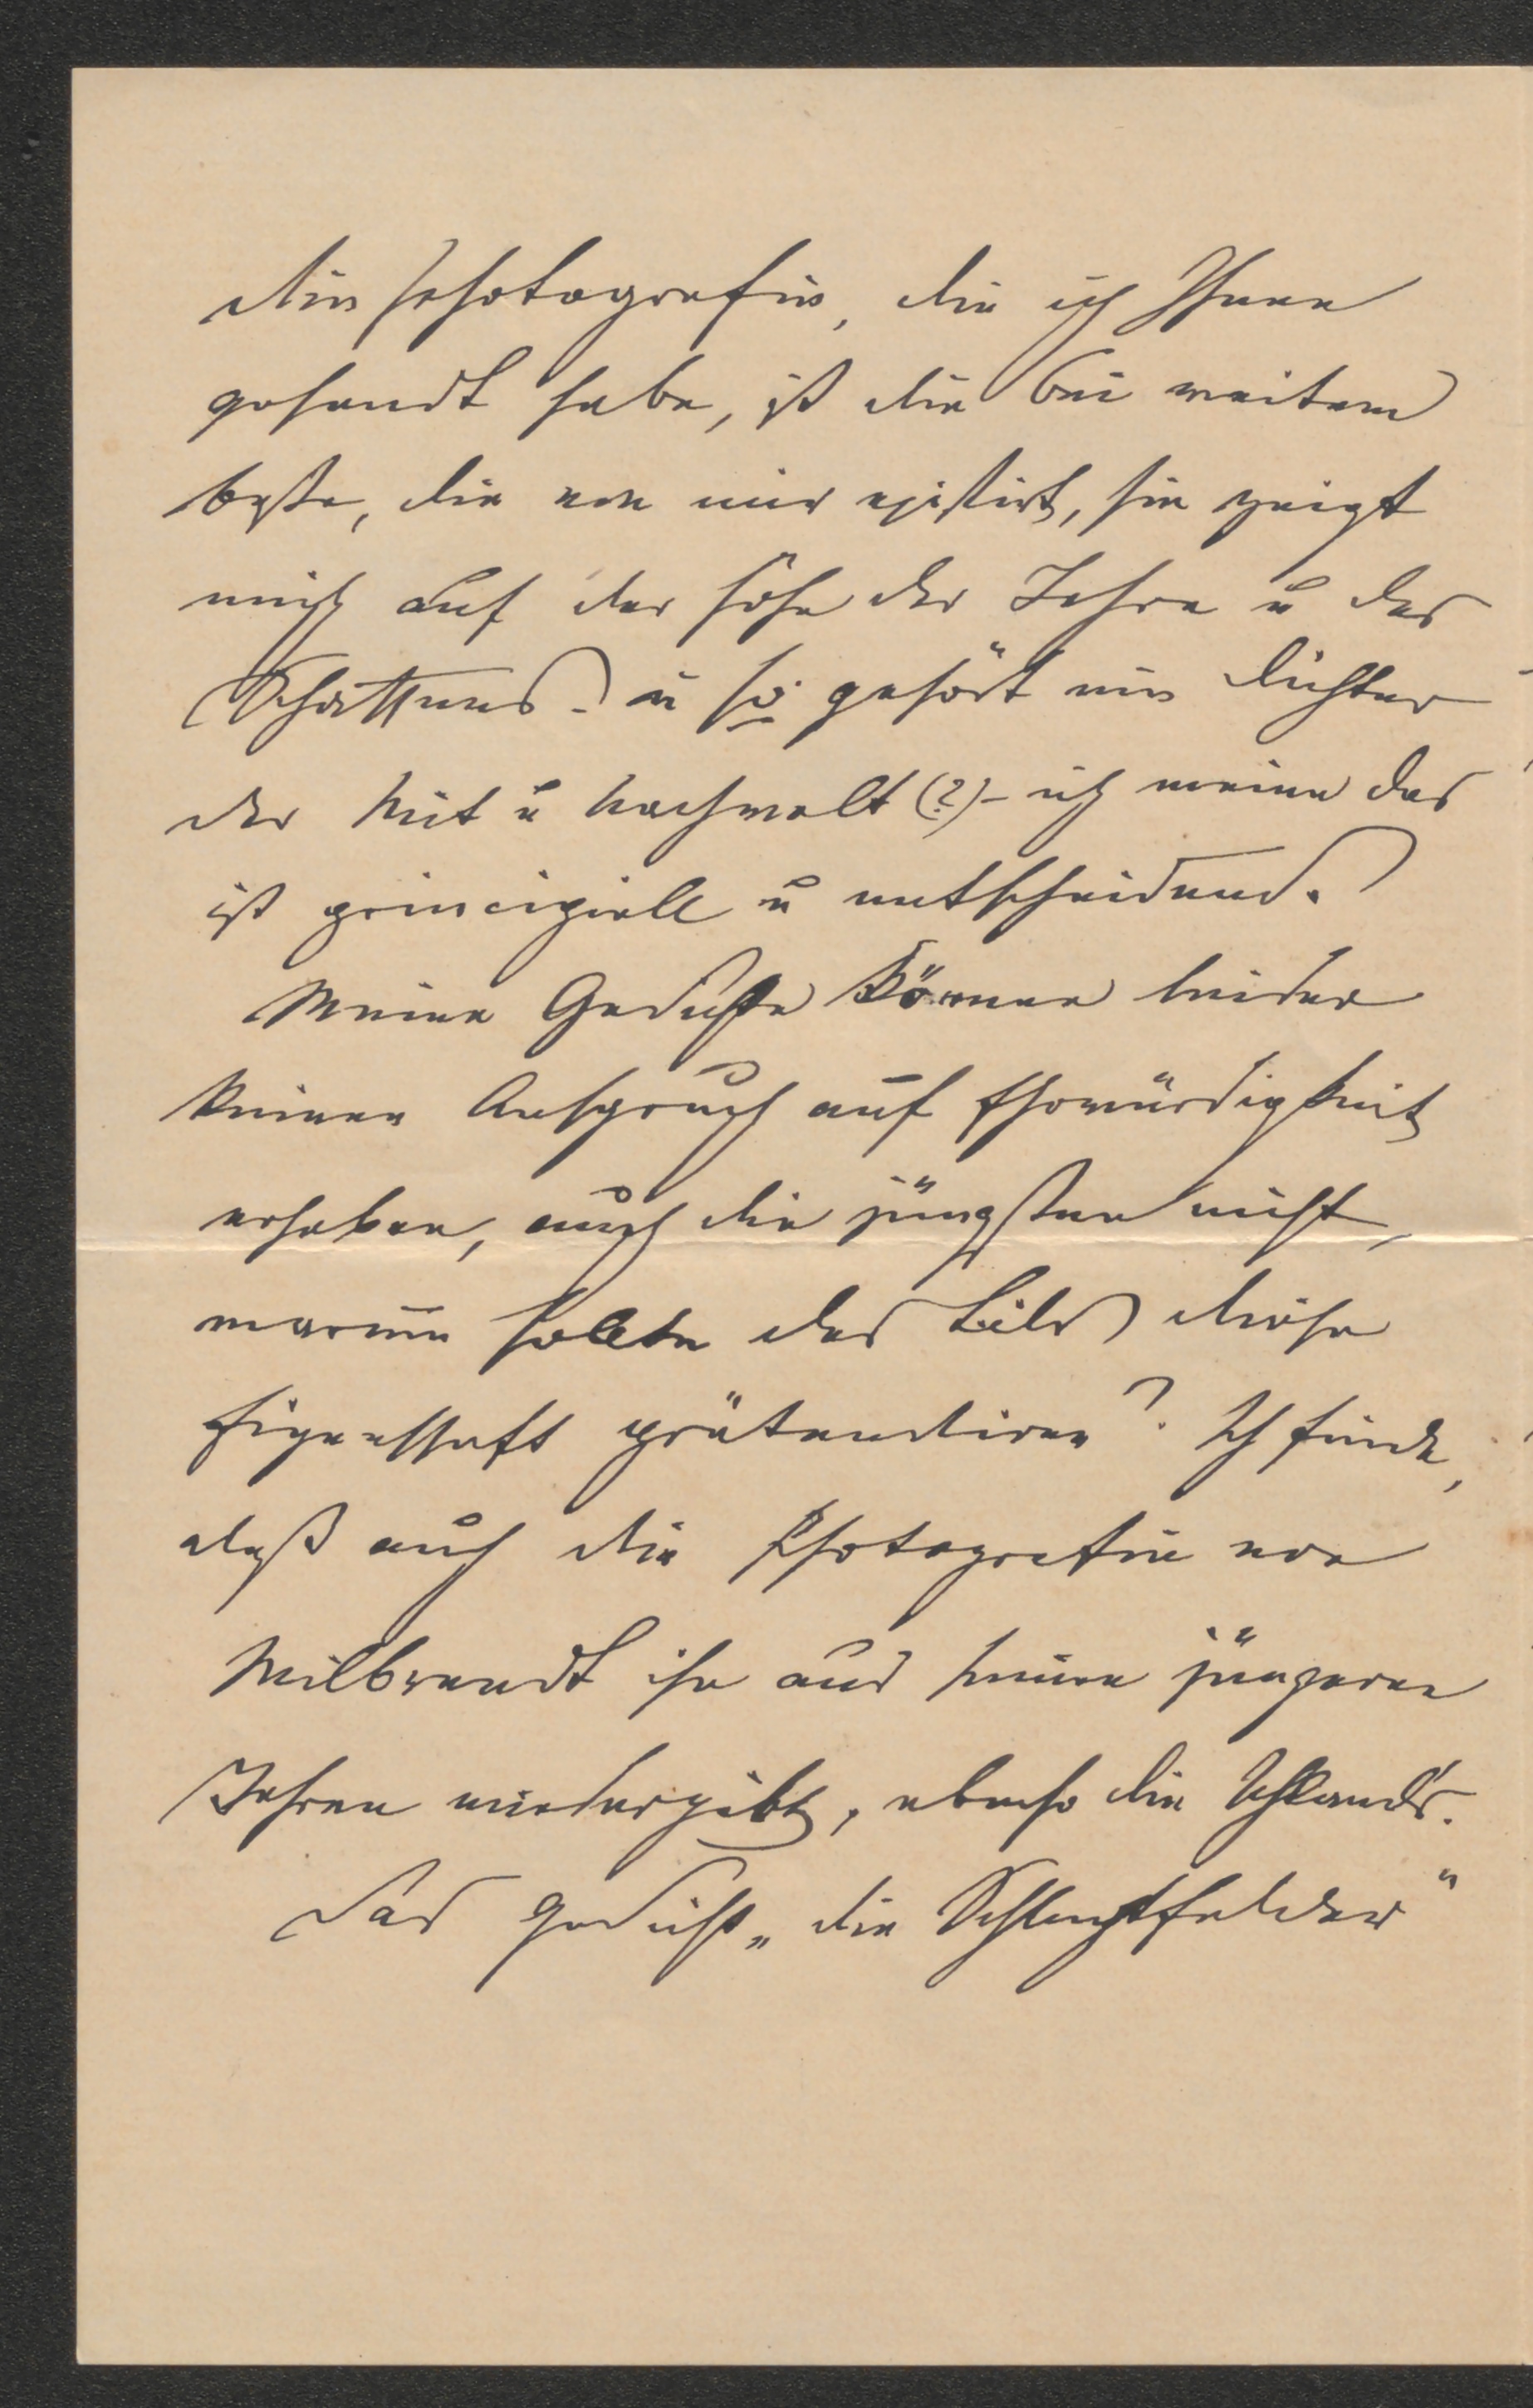 die Photografie, die ich Ihnen
gesandt habe, ist die bei weitem
beste, die von mir existirt, sie zeigt
mich auf der Höhe der Jahre u des
Schaffens - u so gehört ein Dichter
der Mit u Nachwelt (?) - ich meine das
ist principiell u entscheidend.
Meine Gedichte können leider
keinen Anspruch auf Ehrwürdigkeit
erheben, auch die jüngsten nicht,
warum sollte das Bild diese
Eigenschaft prätendiren? Ich finde,
daß auch die Photografie von
Wilbrandt ihn aus seinen jüngeren
Jahren wiedergibt, ebenso die Uhland's.
Das Gedicht „die Schlachtfelder"